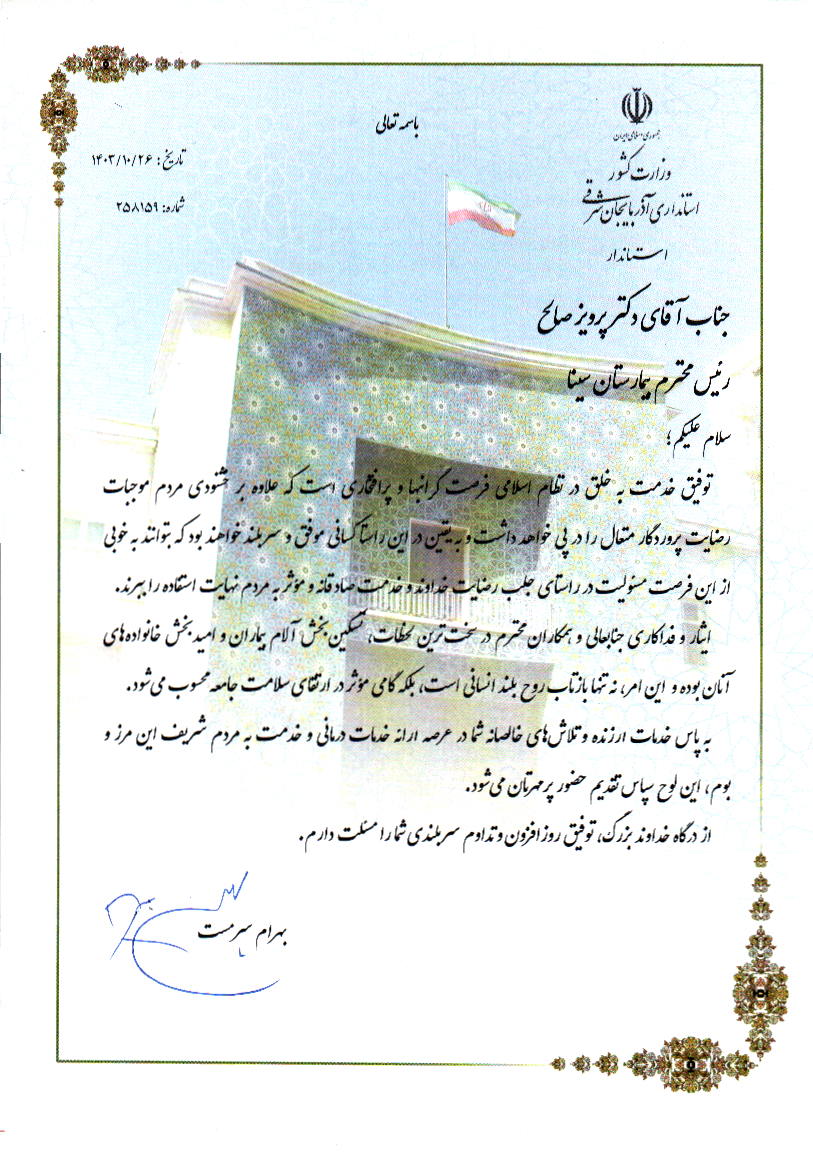 باسمه تعالی
جمهوری اسلامی ایران
وزارت کشور
استانداری آذربایجان شرقی
استاندار
تاریخ: ۱۴۰۳/۱۰/۲۶
شماره: ۲۵۸۱۵۹
جناب آقای دکتر پرویز صالح
رئیس محترم بیمارستان سینا
سلام علیکم؛
توفیق خدمت به خلق در نظام اسلامی فرصت گرانبها و پرافتخاری است که علاوه بر خشنودی مردم موجبات
رضایت پروردگار متعال را در پی خواهد داشت و به یقین در این راستا کسانی موفق و سربلند خواهند بود که بتوانند به خوبی
از این فرصت مسئولیت در راستای جلب رضایت خداوند و خدمت صادقانه و مؤثر به مردم نهایت استفاده را ببرند.
ایثار و فداکاری جنابعالی و همکاران محترم در سخت‌ترین لحظات، تسکین بخش آلام بیماران و امید بخش خانواده‌های
آنان بوده و این امر، نه تنها بازتاب روح بلند انسانی است، بلکه گامی مؤثر در ارتقای سلامت جامعه محسوب می‌شود.
به پاس خدمات ارزنده و تلاش‌های خالصانه شما در عرصه ارائه خدمات درمانی و خدمت به مردم شریف این مرز و
بوم، این لوح سپاس تقدیم حضور پرمهرتان می‌شود.
از درگاه خداوند بزرگ، توفیق روز افزون و تداوم سربلندی شما را مسئلت دارم.
بهرام سرمست